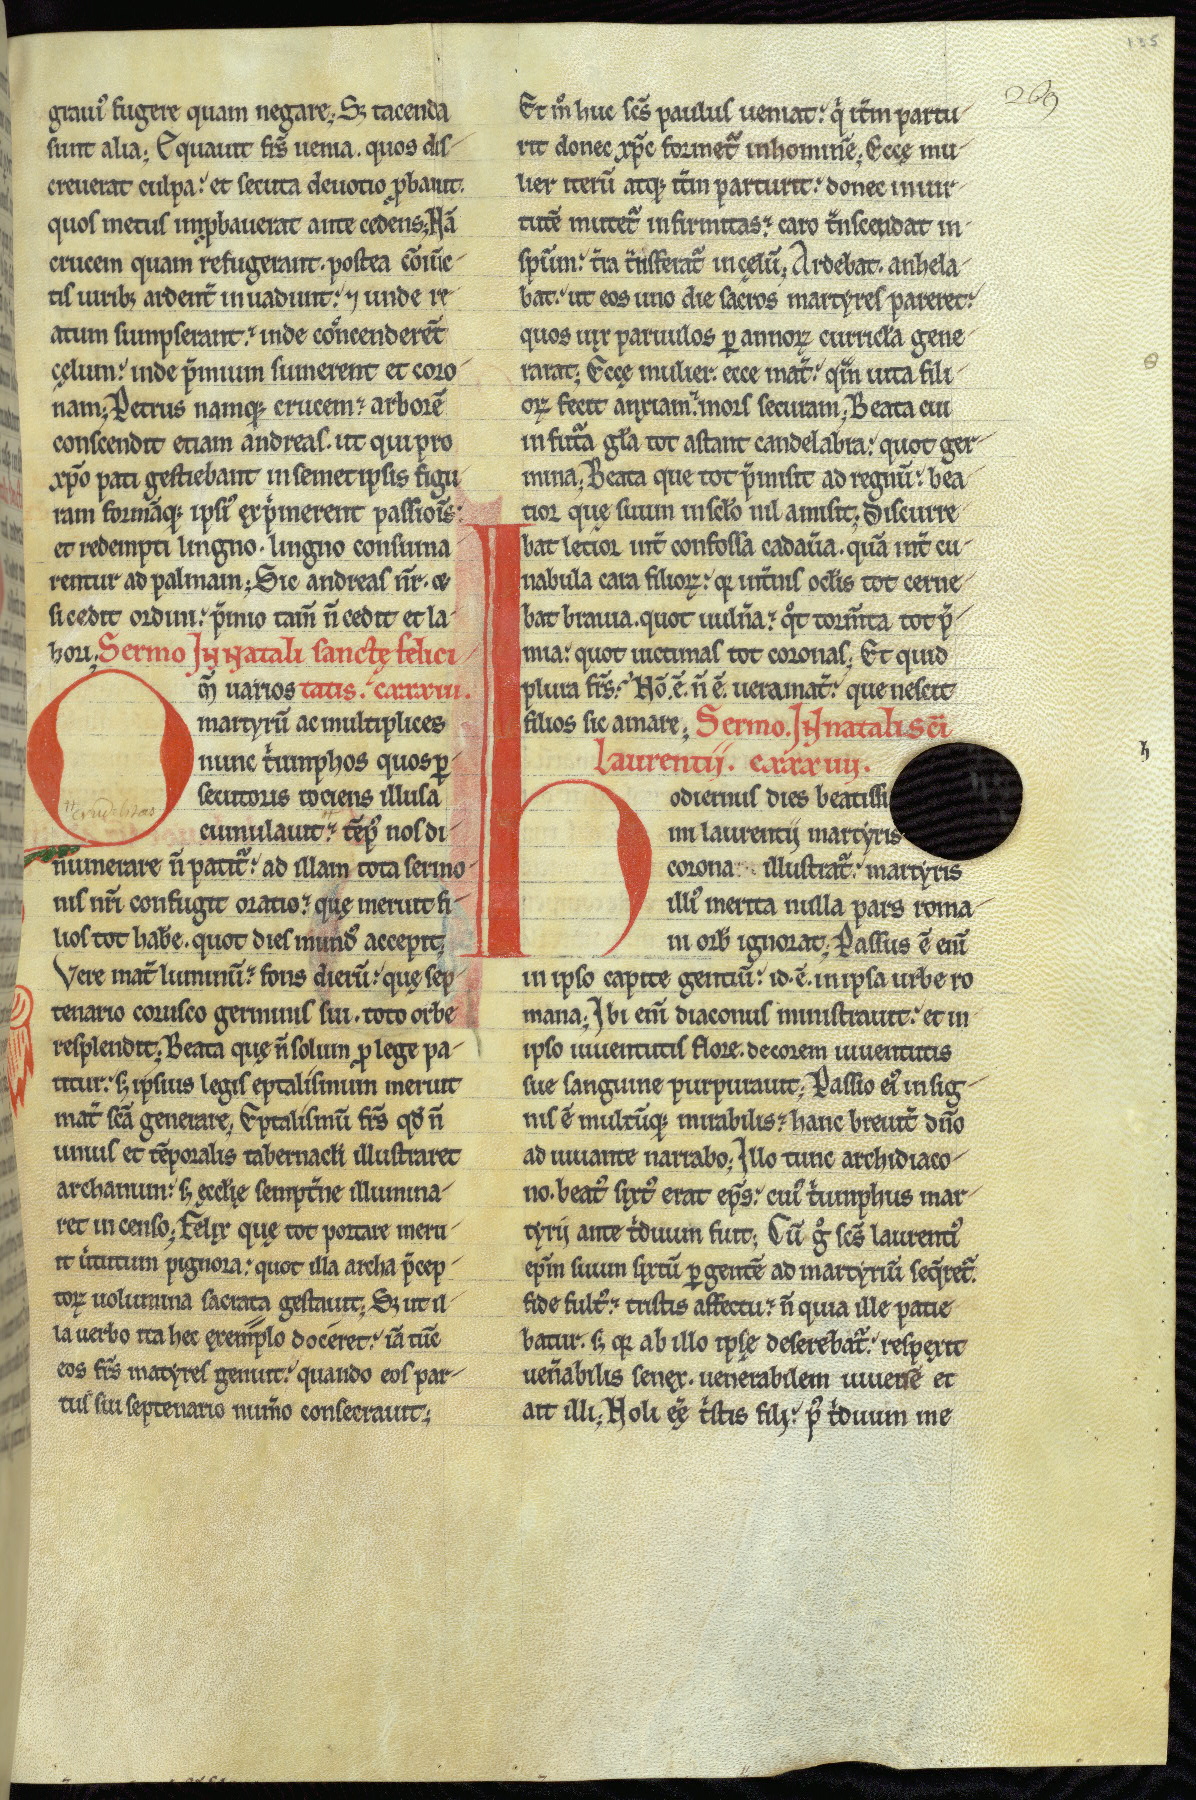 155
269
grauiꝰ fugere quam negare; Sꝫ tacenda
sunt alia; Equauit fr̄s uenia. quos dis-
creuerat culpa: et secuta deuotio ꝓbauit.
quos metus inꝓbauerat ante cedens; Nā
crucem quam refugerant. postea cōiūc-
tis uiribꝫ ardent᷑ inuadunt: ⁊ unde re-
atum sumpserant: inde cōncenderēt
cęlum: inde p̄mium sumerent et coro-
nam; Petrus namqꝫ crucem: arborē
conscendit etiam andreas. ut qui pro
xp̄o pati gestiebant in semet ipsis figu
ram formāqꝫ ipsiꝰ exp̄merent passiōis:
et redempti lingno. lingno consuma-
rentur ad palmam; Sic andreas nr̄. &
si cedit ordini: p̄mio tam̄ n̄ cedit et la-
bori; Sermo In natali sanctę felici
tatis. cxxxiii.
Qm̄ uarios
martyrū ac multiplices
nunc t̓umphos quos ꝑ
secutoris tociens illusa
crudelitas
cumulauit: tēpꝰ nos di-
numerare n̄ patit᷑: ad illam tota sermo-
nis nr̄i confugit oratio: quę meruit fi-
lios tot hab̄e. quot dies mundꝰ accepit;
Vere mat̄ luminū: fons dierū: quę sep-
tenario corusco germinis sui. toto orbe
resplendit; Beata quę n̄ solum ꝓ lege pa-
titur: sꝫ ipsius legis eptalismum meruit
mat̄ scā generare; Eptalismū fr̄s qd̄ n̄
unius et tēporalis tabernacłi illustraret
archanum: sꝫ ęccłię sempit̄ne illumina-
ret incenso; Felix quę tot portare meru-
it uirtutum pignora: quot illa archa p̄cep-
torꝝ uolumina sacrata gestauit; Sꝫ ut il-
la uerbo ita hec exemplo doceret: iā tūc
eos fr̄s matyres genuit: quando eos par-
tus sui septenario num̄o consecrauit;
Et m̊ huc scs̄ paulus ueniat: q̇ it̄m partu-
rit donec xp̄c formet᷑ in homine; Ecce mu-
lier iterū atqꝫ it̄m parturit: donec in uir-
tutē mutet᷑ infirmitas: caro t̄nscendat in
spm̄: t̄ra t̄nsferat᷑ in cęlū; Ardebat. anhela-
bat: ut eos uno die sacros martyres pareret:
quos uix paruulos ꝑ annorꝝ curricła gene-
rarat; Ecce mulier: ecce mat̄: qm̄ uita fili-
orꝝ fecit anxiam: mors securam; Beata cui
in fut̄a gła tot astant candelabra: quot ger-
mina; Beata que tot p̄misit ad regnū: bea-
tior quę suum in scło nil amisit; Discurre-
bat letior int̄ confossa cadau̅a. quā int̄ cu-
nabula cara filiorꝝ: qꝛ int̄nis ocłis tot cerne-
bat brauia. quot uuln̄a: qͦt torm̄ta tot p̄-
mia: quot uictimas tot coronas; Et quid
plura fr̄s: Nō ē. n̄ ē. uera mat̄: que nescit
filios sic amare; Sermo. In natali sc̄i
Laurentii. cxxxiiii.
hodiernus dies beatissi
mi laurentii martyris
corona illustrat᷑: martyris
illiꝰ merita nulla pars roma-
ni orbꝰ ignorat; Passus ē eni̅
in ipso capite gentiū: id. ē. in ipsa urbe ro-
mana; Ibi eni̅ diaconus ministrauit: et in
ipso iuuentutis flore. decorem iuuentutis
sue sanguine purpurauit; Passio eiꝰ insig-
nis ē multūqꝫ mirabilis: hanc breuit̄ dn̄o
adiuuante narrabo; Illo tunc archidiaco-
no. beatꝰ sixtꝰ erat ep̄s: cuiꝰ t̓umphus mar-
tyrii ante t̓duum fuit; Cū g̊ scs̄ laurentiꝰ
ep̄m suum sixtū ꝑgentē ad martyriū seq̄ret᷑.
fide fultꝰ: tristis affectu: n̄ quia ille patie-
batur. sꝫ qꝛ ab illo ipse deserebat᷑: respexit
uen̄abilis senex. uenerabilem iuuenē et
ait illi; Noli eē t̓stis fili: pꝰ t̓duum me